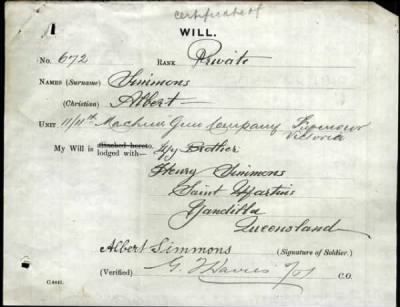 certificate of
WILL.
No. 672 RANK Private
NAMES (Surname) Simmons
(Christian) Albert
UNIT 11/11th Machine Gun Company Seymour
Victoria
My Will is attached hereto. My Brother
lodged with
Henry Simmons
Saint Martins
Yandilla
Queensland
Albert Simmons (Signature of Soldier.)
(Verified) G. T Davies C.O.
C.6442.